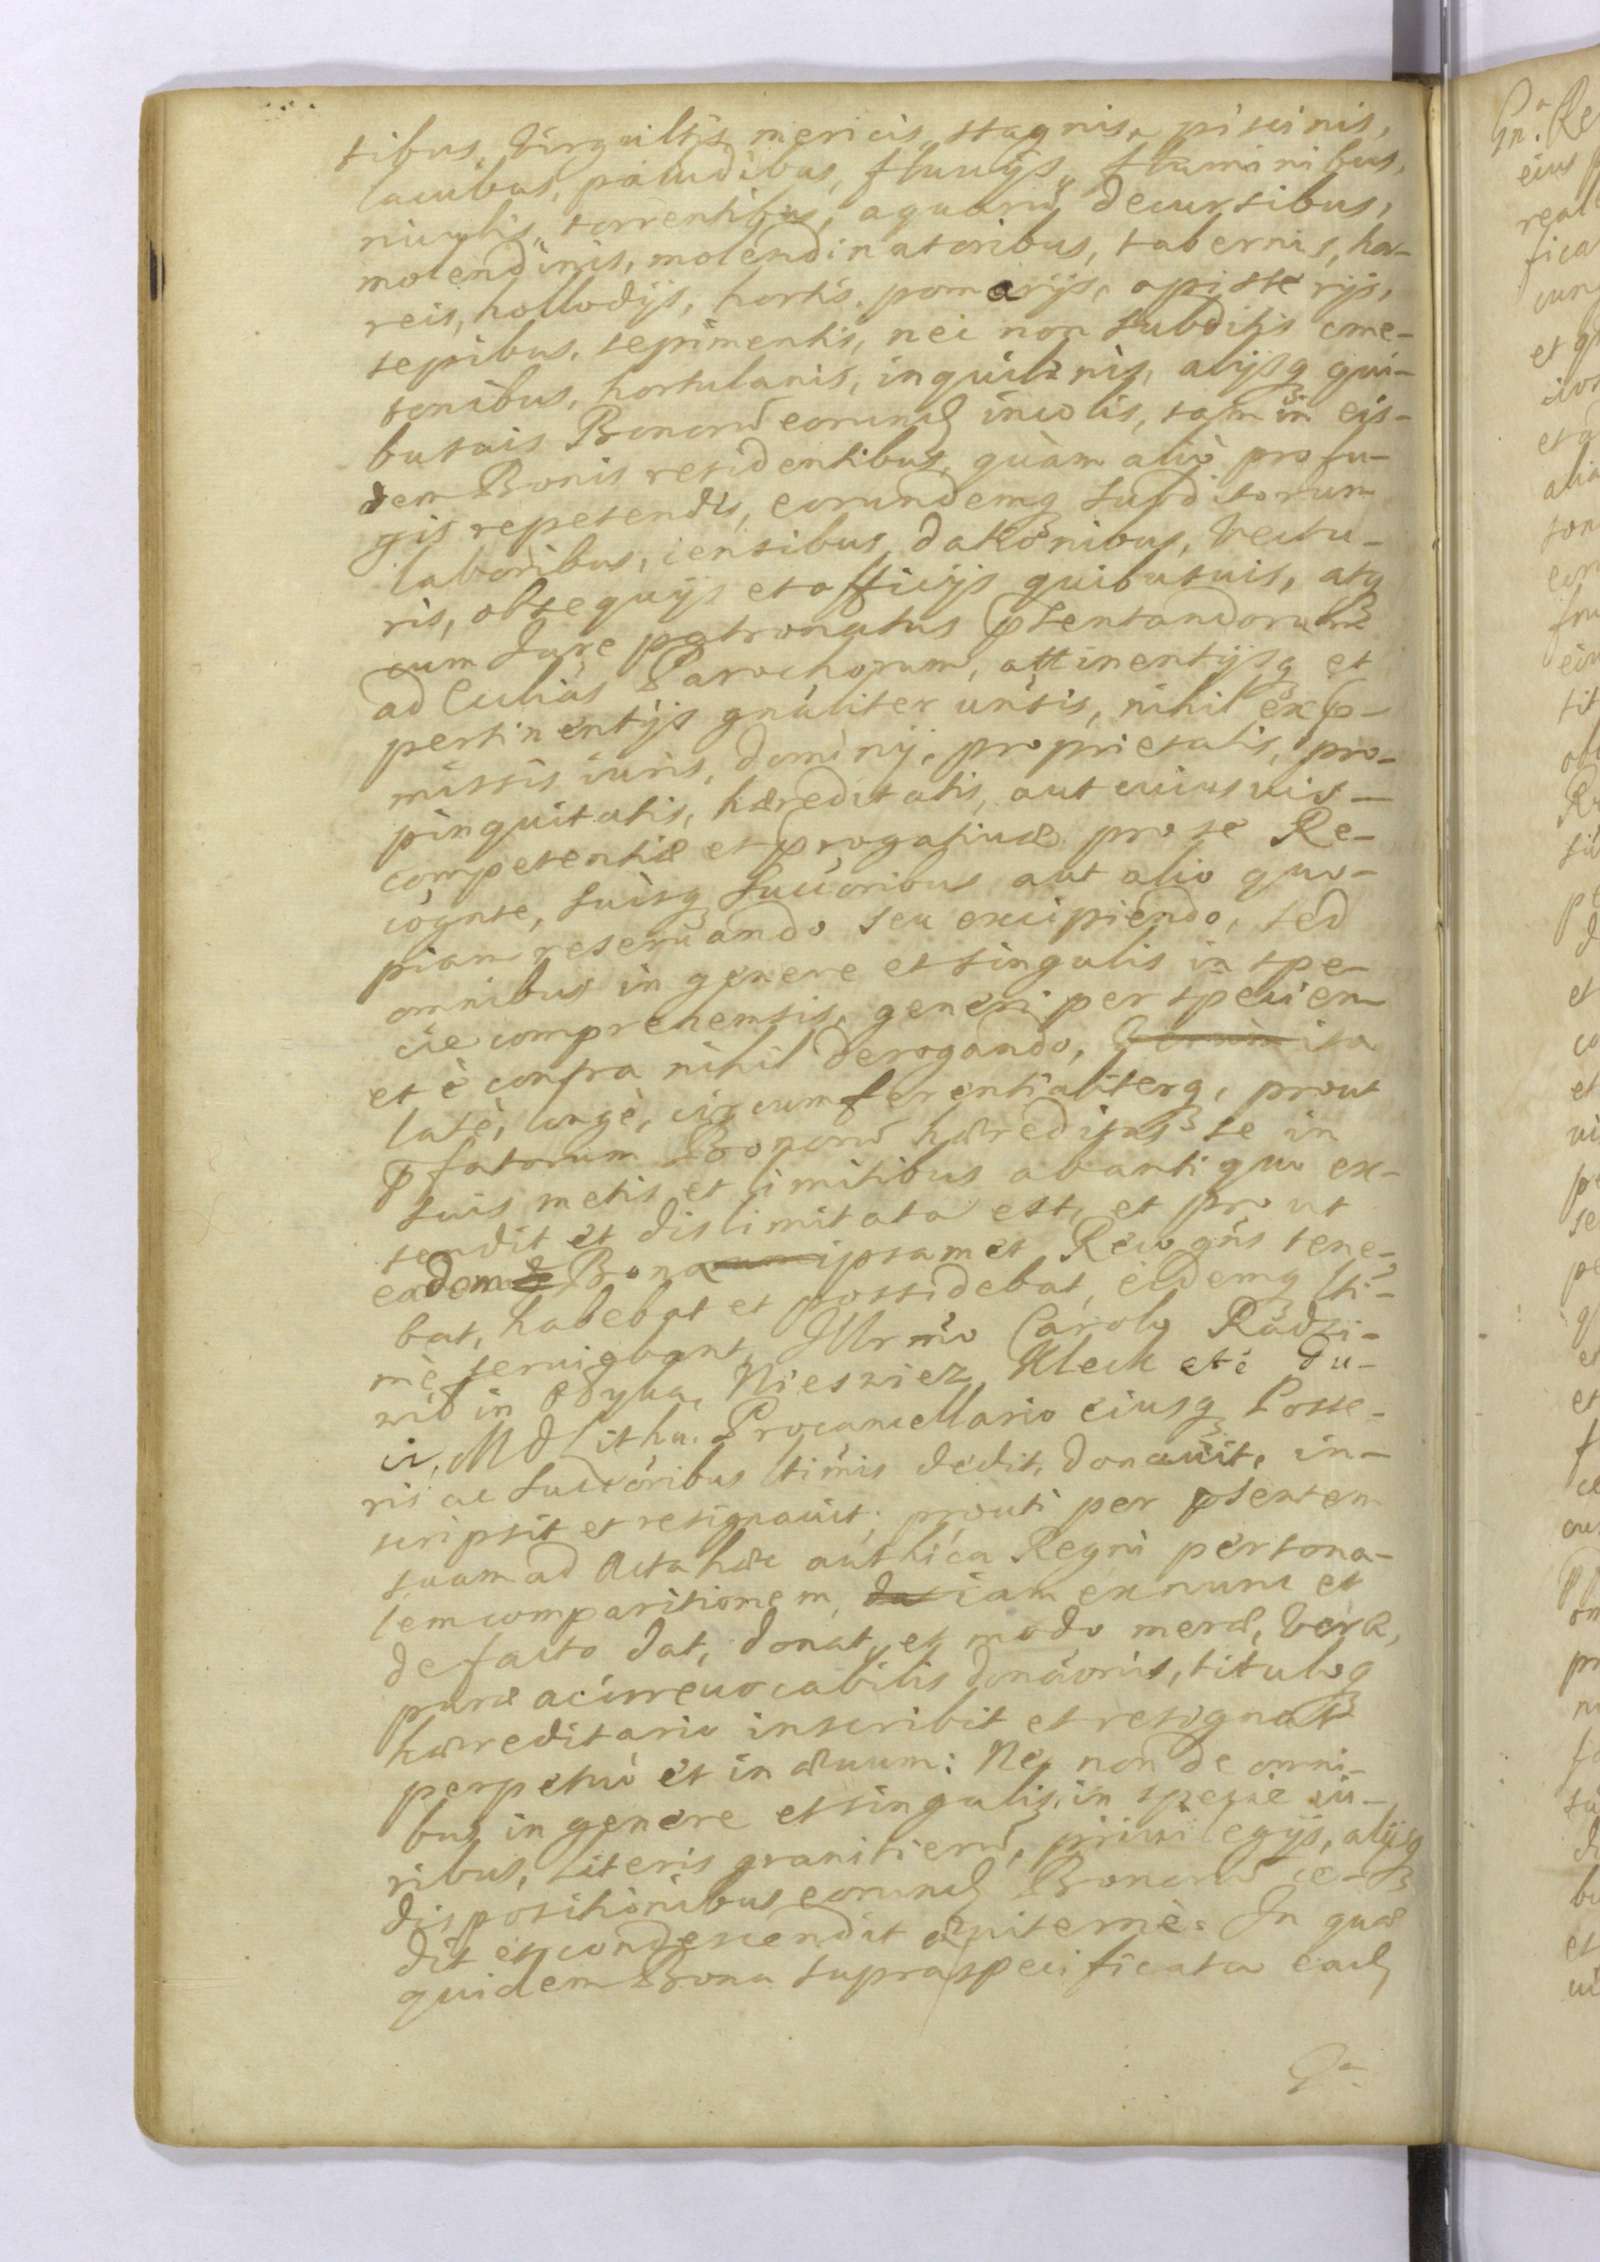 tibus, Virgultis, mericis, stagnis, piscinis,
lacubus, paludibus, fluuÿs, fluminibus,
riuulis, torrentibus, aquarũ decursibus,
molendinis, molendinatoribus, tabernis, hor-
reis, hortis, pomarÿs,
sepibus, sepimentis, nec non subditis cme-
tonibus, hortulanis, inquilinis, alÿsq qui-
busuis Bonorũ eorund incolis, tam in eis-
dem Bonis residentibus, quàm aliò profu-
gis repetendis, eorundemq subditorum
laboribus, censibus, dationibus, Vectu-
ris, obsequÿs et officÿs quibusuis, atq
cum Jure patronatus pſentandorum
ad Ecclias Parochorum, attinentÿsq et
pertinentÿs gnaliter uńsis, nihil ex p-
missis iuris, dominÿ, proprietatis, pro-
pinquitatis, hæreditatis, aut cuiusuis
competentiæ et prrogatiuæ pro se Re-
cognte, suisq succoribus aut alio quo-
piam reseruando seu excipiendo, sed
omnibus in genere et singulis in spe-
cie comprehensis, generi per speciem
et è contra nihil derogando, ita
latè, longè, circumferentialiterq, prout
pfatorum Bonorũ hæreditas se in
suis metis et limitibus ab antiquo ex-
tendit et dislimitata est, et prout
eadem Bona ipsamet Recogńs tene-
bat, habebat et possidebat, eidemq ltti-
mè seruiebant, Illrmo Carolo Radzi-
wił in Ołyka, Nieswiez, Kleck etc Du-
ci, M D Lithu. Procancellario eiusq Posse-
ris ac succoribus ltimis dedit, donauit, in-
scripsit et resignauit; prouti per pſentem
suam ad Acta hæc authica Regni persona-
lem comparitionem, dat iam ex nunc et
de facto dat, donat, et modo meræ, Veræ,
puræ ac irreuocabilis donaoris, tituloq
hæreditario inscribit et resignat
perpetuò et in æuum: Nec non de omni-
bus in genere et singulis in specie iu-
ribus, literis graniticrũ, priuilegÿs, alÿsq
dispositionibus eorund Bonorũ ce-
dit et condescendit æuiternè. In quæ
quidem Bona supra specificata ead